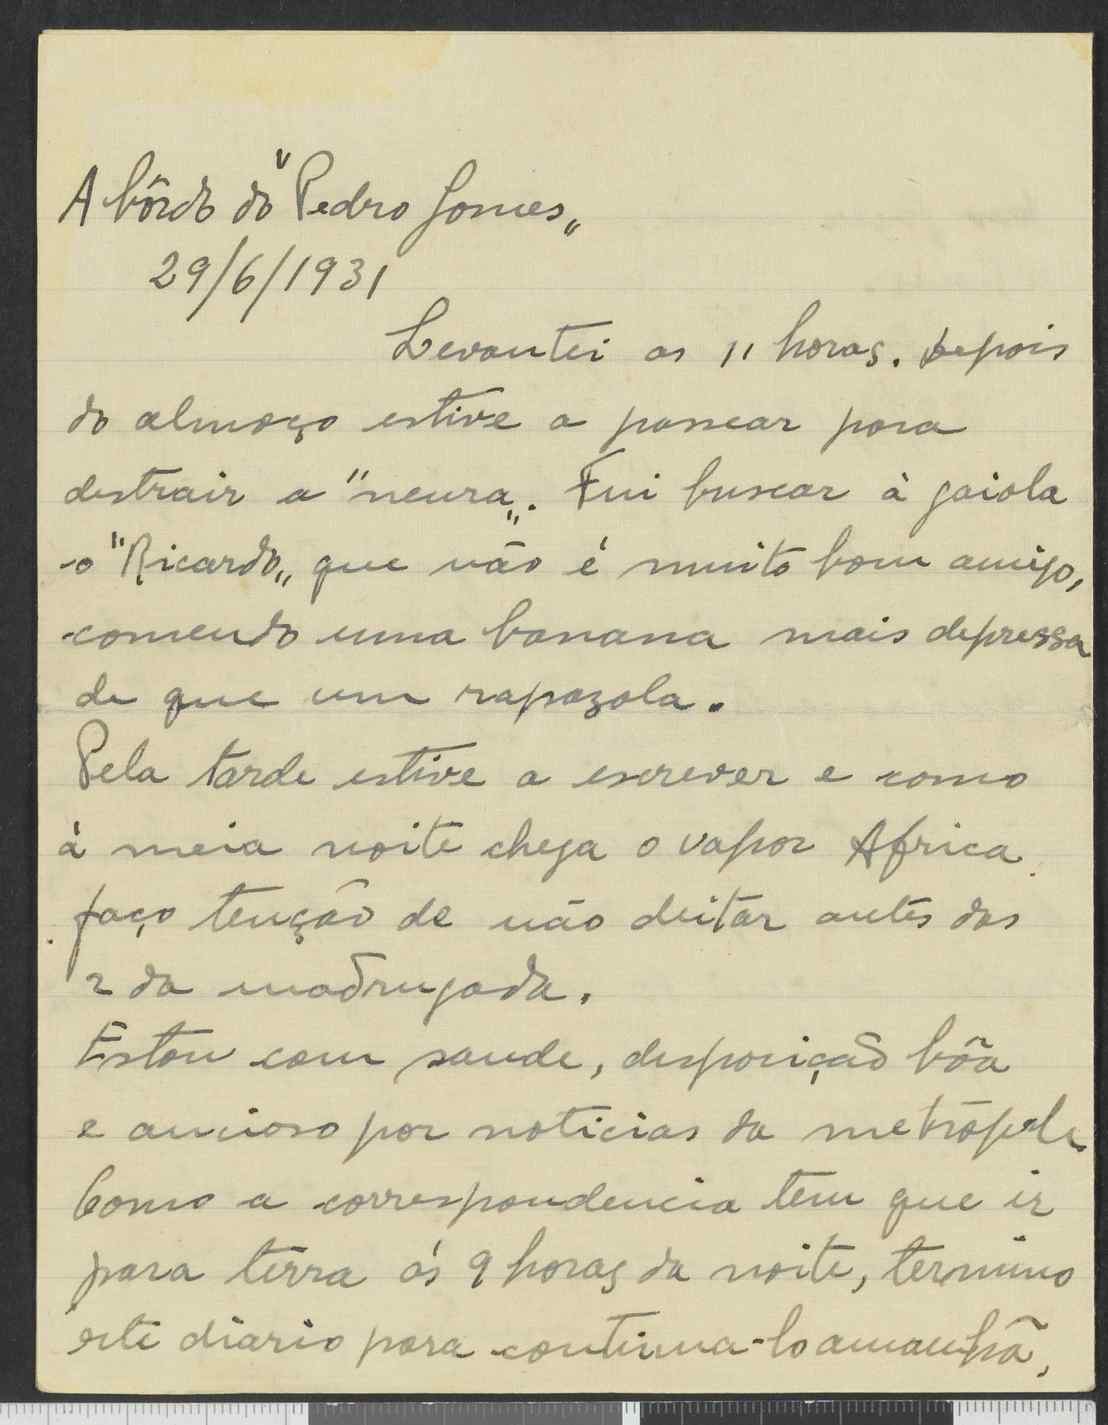 A bôrdo do "Pedro Gomes"
29/6/1931
Levantei as 11 horas. Depois
do almoço estive a passear para
destrair a "neura". Fui buscar à gaiola
o "Ricardo" que não é muito bom amigo,
comendo uma banana mais depressa
de que um rapazola.
Pela tarde estive a escrever e como
à meia noite chega o vapor Africa
faço tenção de não deitar antes das
2 da madrugada.
Estou com saude, disposição bôa
e ancioso por noticias da metrópole
Como a correspondencia tem que ir
para terra ás 9 horas da noite, termino
este diario para continua-lo amanhã,